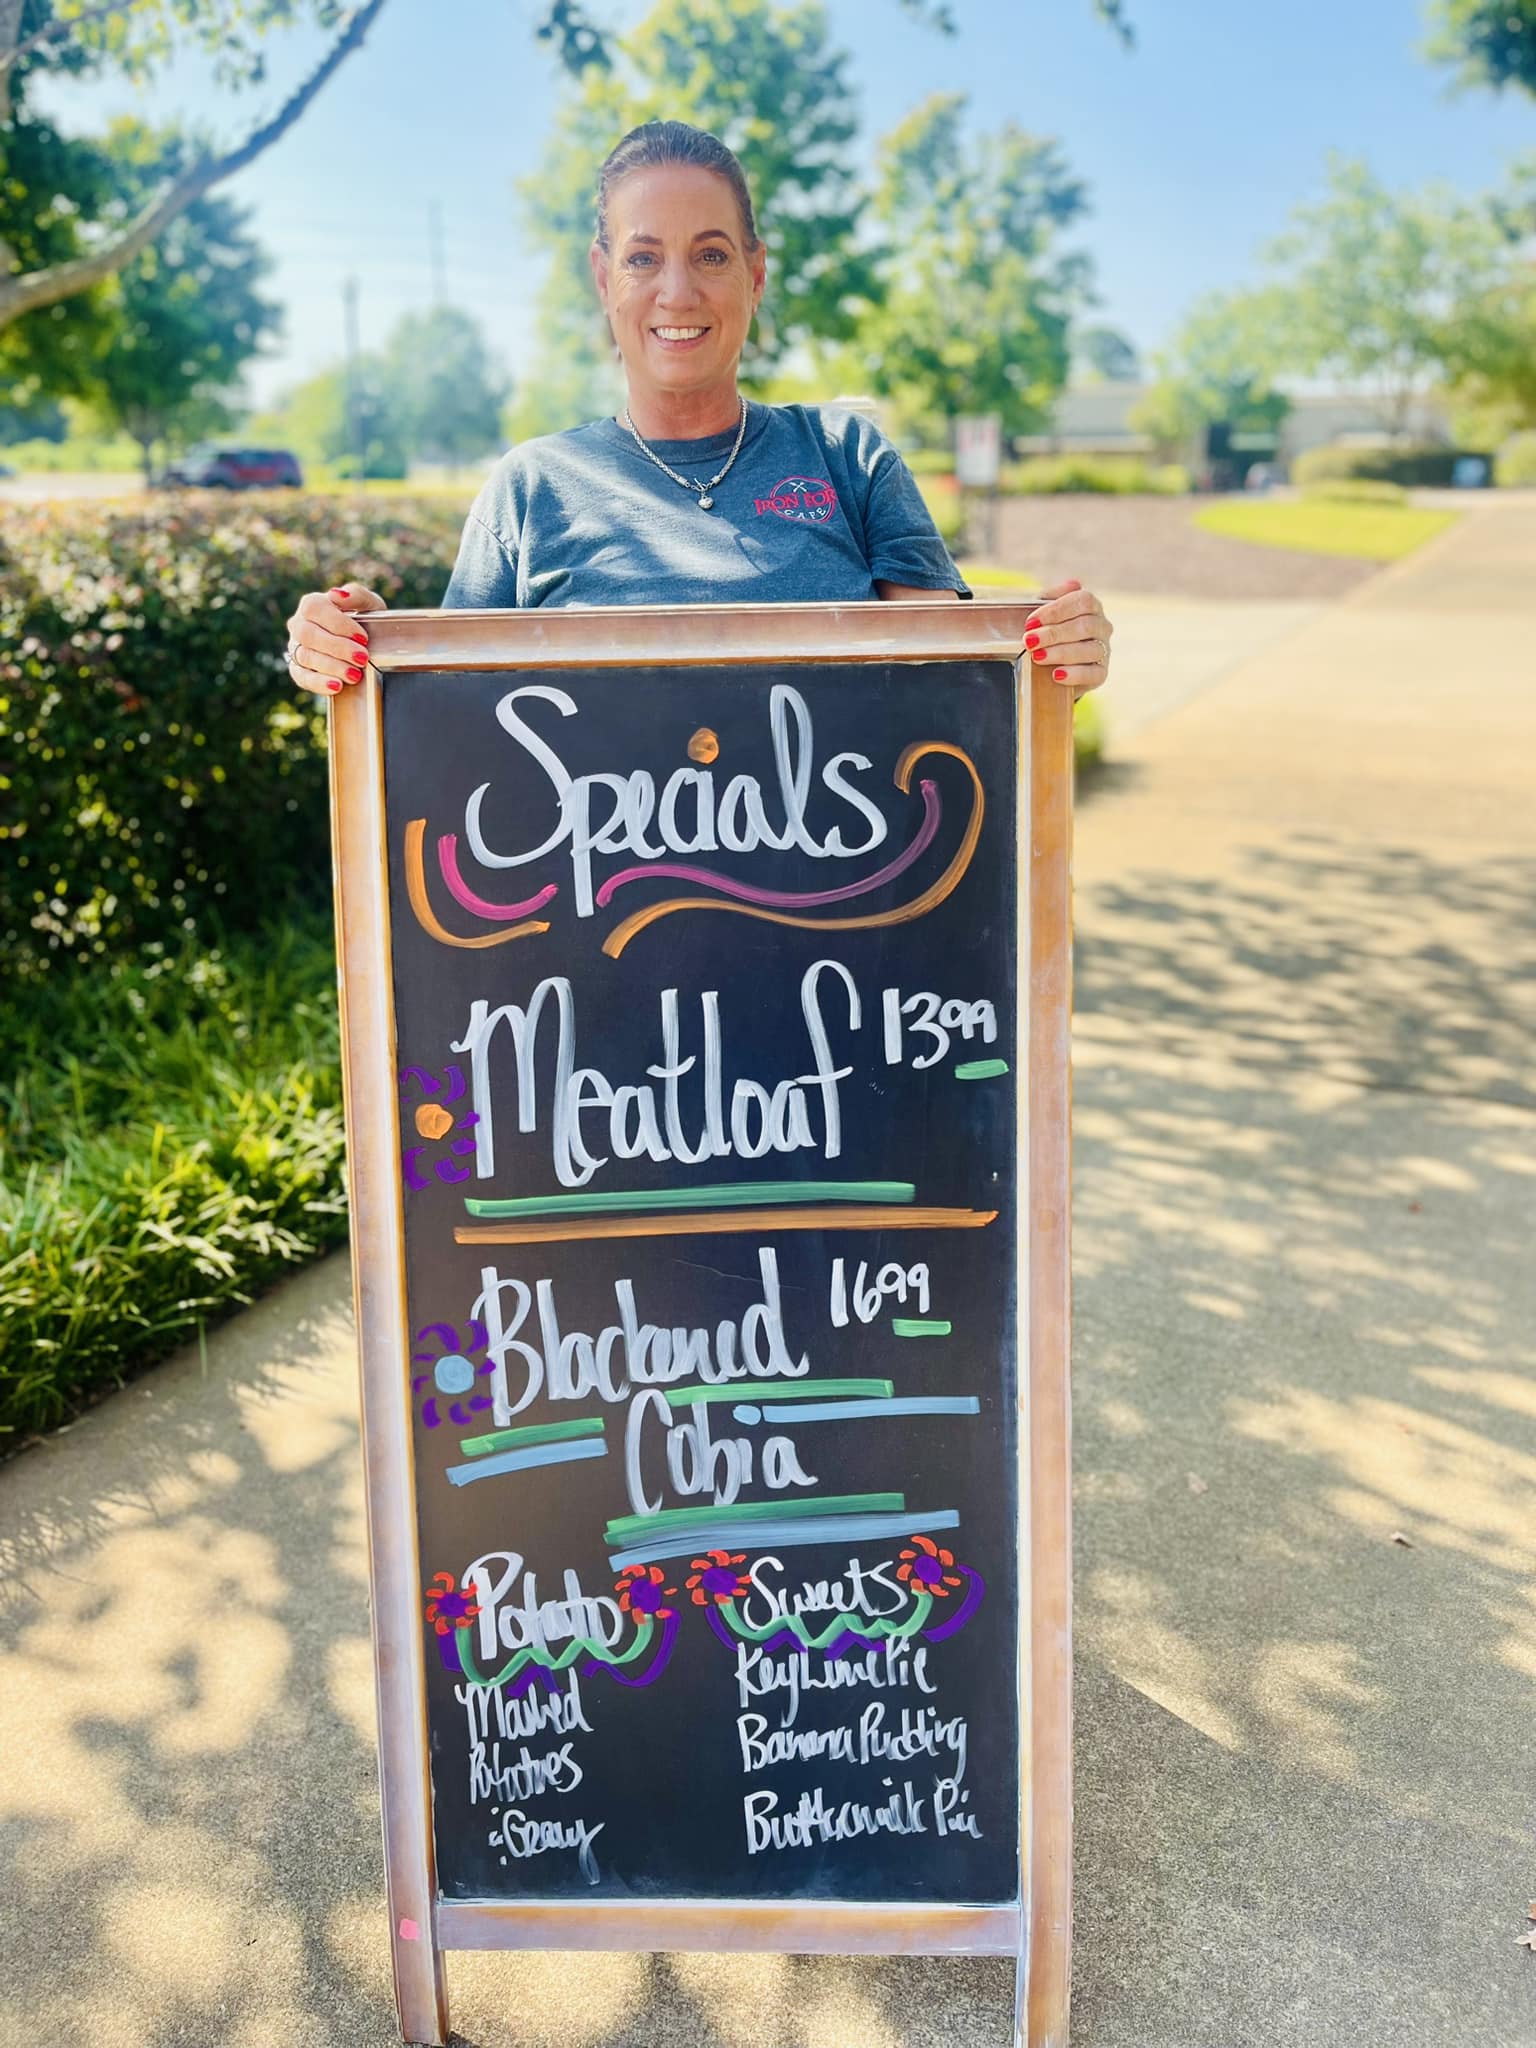 IRON FORK
CAFE
Specials
Meatloaf 1399
Blackened 1699
Cobia
Potato
Mashed
Potatoes
& Gravy
Sweets
Key Lime Pie
Banana Pudding
Buttermilk Pie